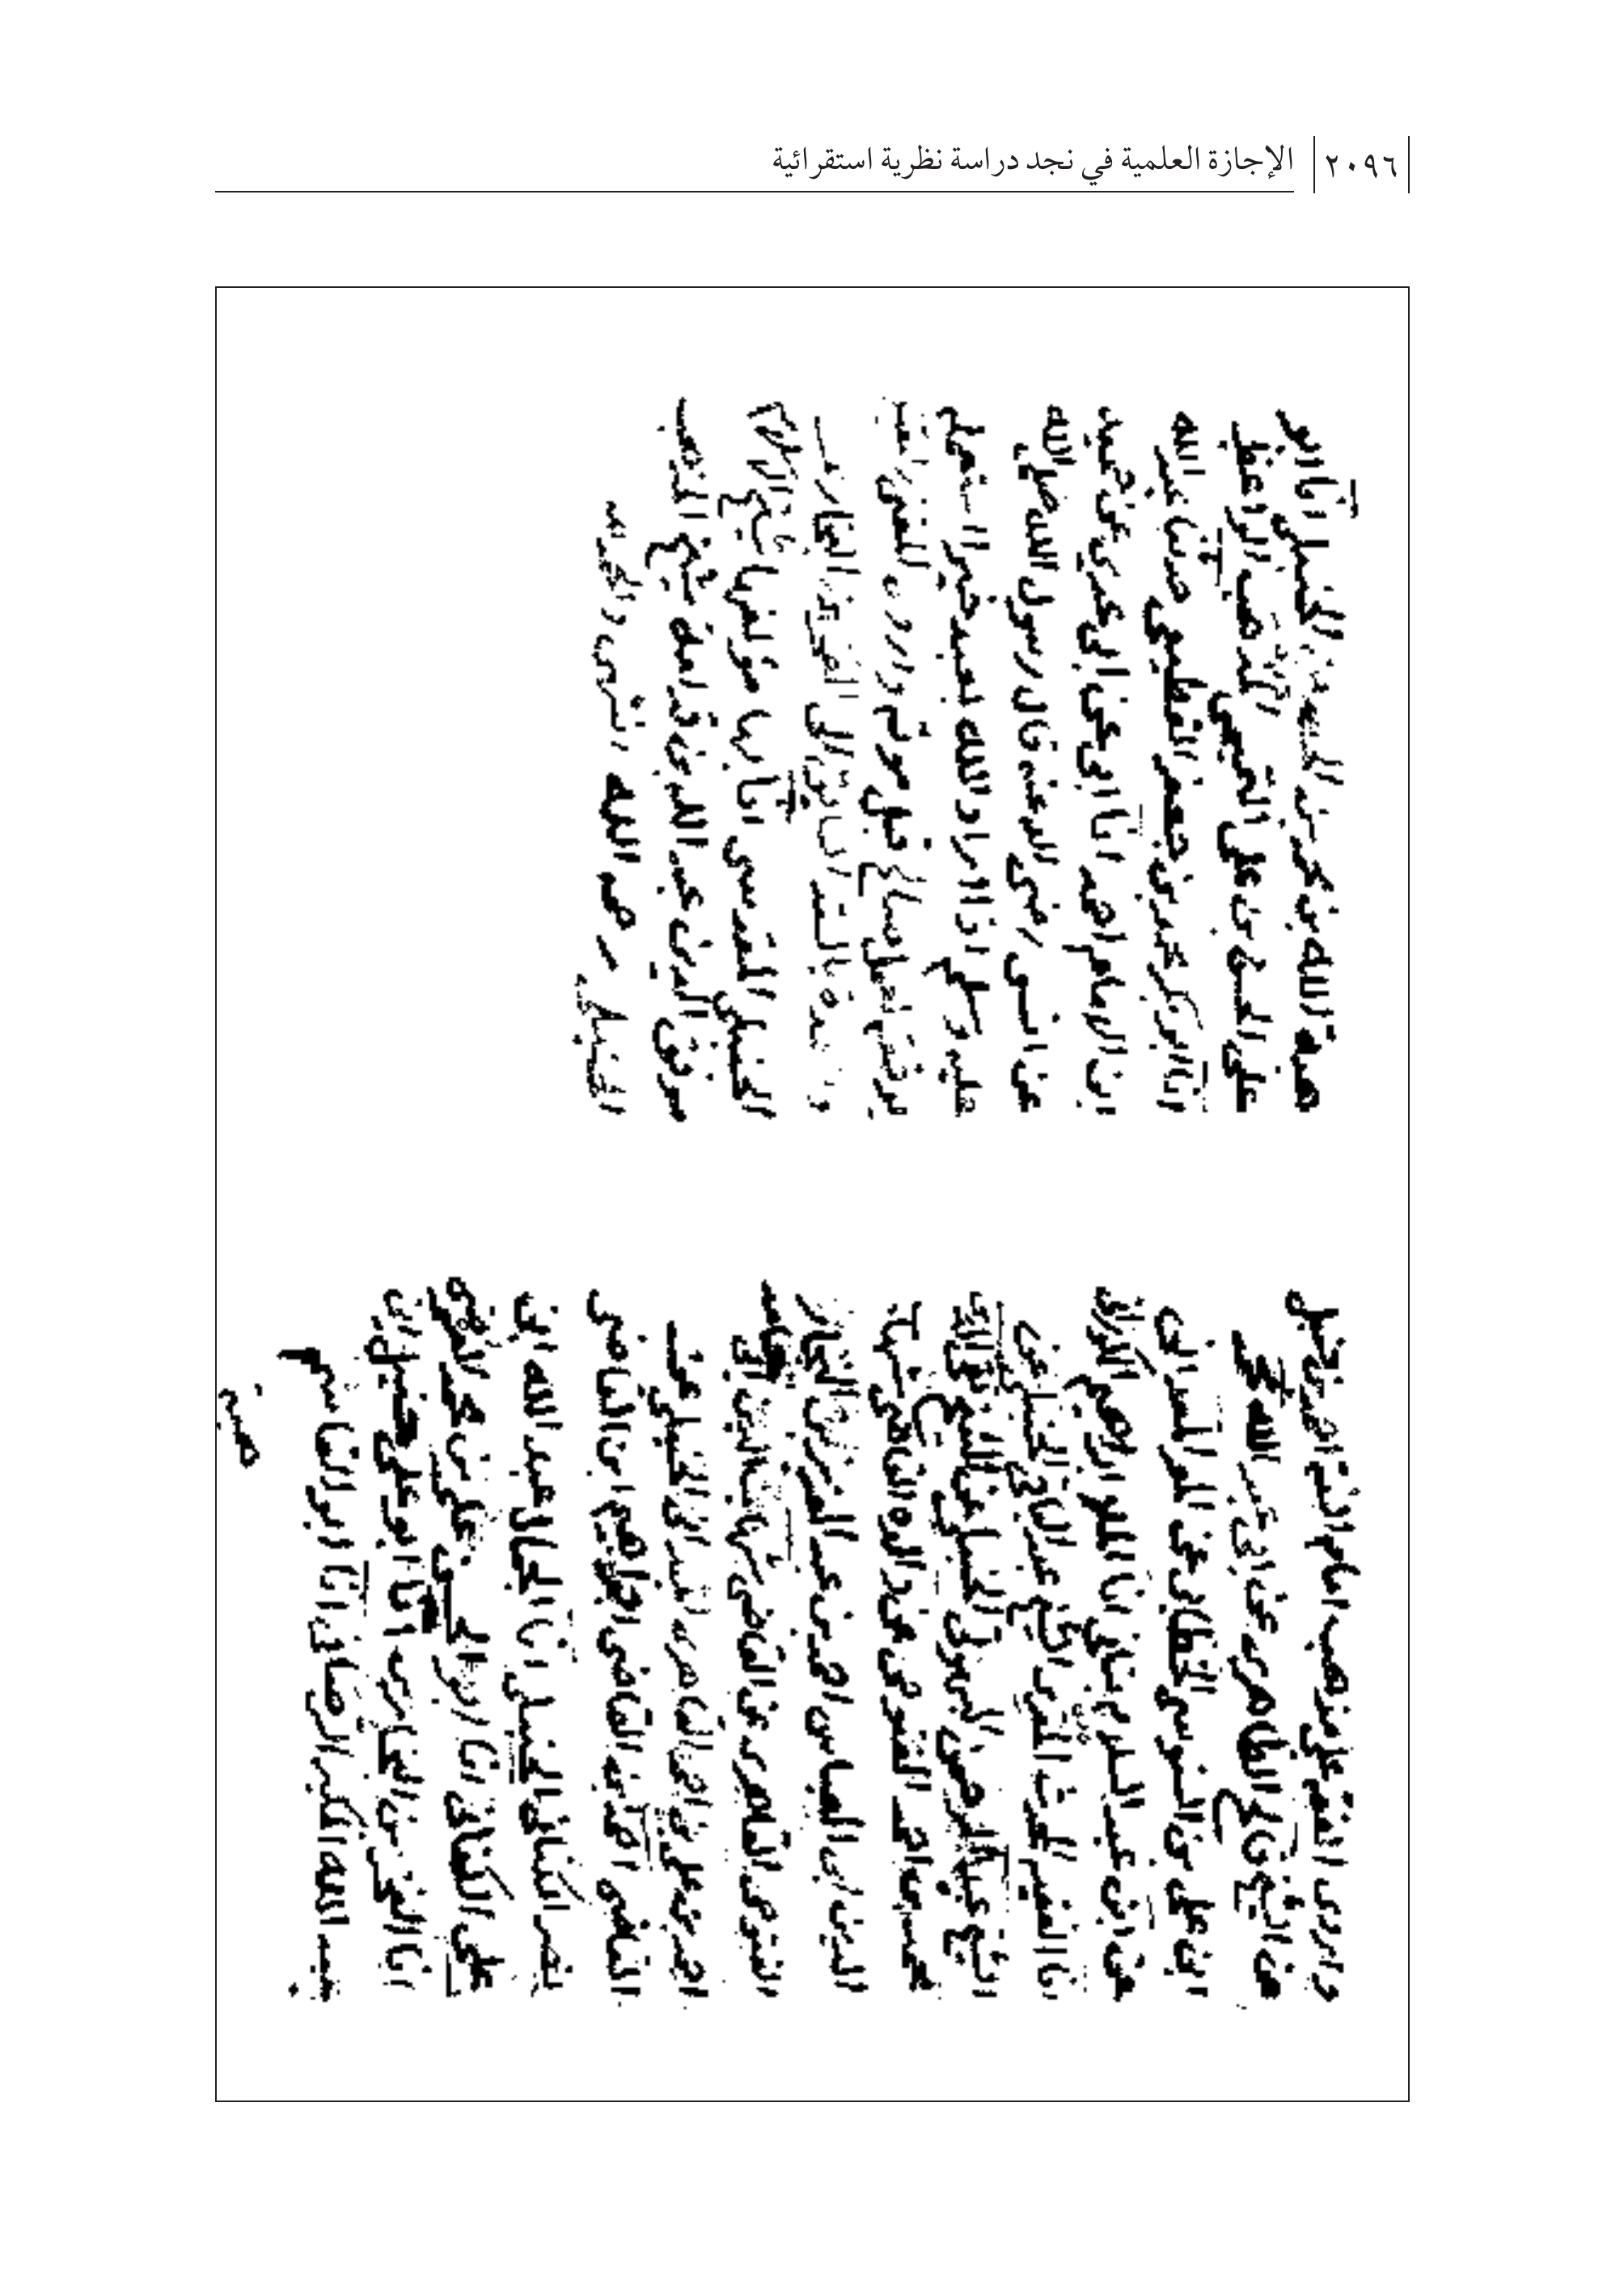 ٢٠٩٦ الإجازة العلمية في نجد دراسة نظرية استقرائية
واروى الفقه على مذهب امام السنة احمد بن حنبل
عن الشيخ فالح الظاهري عن ابي عبد الله محمد
ابن علي بن السنوسي الخطابي عن المعمر المسند ابي
عن ابن عبد السلام بناني انا الملو ابراهيم الكوراني
انا الفقير المحدث المقرى الشيخ عبد الباقي الحنبلي عن
الشيخ عبد الرحمن البهوتي الحنبلي عن الشيخ تقي الدين
محمد بن احمد الفتوحي عن والده القاضي شهاب
الدين ابي العباس احمد بن عبد العزيز النجار
الفتوحي القاهري عن القاضي شهاب الدين ابي حامد
احمد بن علي بن احمد القاهري الميداني الحنبلي عن
القاضي احمد بن القاضي ابراهيم ابن القاضي
نصر الله الكناني الحنبلي انا الجمال عبد الله ابن
علي الكناني انا ابو الحسن علي بن محمد العرضي
انا الفخر بن البخاري انا ابو علي حنبل ابن
عبد الله المكبر الرصافي انا ابو القاسم
هبة
هبة الله بن محمد بن الحنبلي انا ابو
علي الحسن بن علي التميمي المذهب الواعظ
انا ابو بكر محمد بن جعفر القطيعي حدثنا عبد الله
ابن الامام احمد انا ابي عن ابن ابي عدي عن حميد
عن انس رضي الله عنه قال رسول الله صلى الله
عليه وسلم اذا اراد الله بعبد خيرا استعمله
يوفقه لعمل صالح قبل موته واروى المقنع
بالسند السابق الى الفخر بن البخاري
الحنبلي المقدسي انا بها مؤلفها شيخ الاسلام
موفق الدين عبد الله بن قدامة شيخ المذهب
الحنبلي رحمه الله انتهى والحمد لله